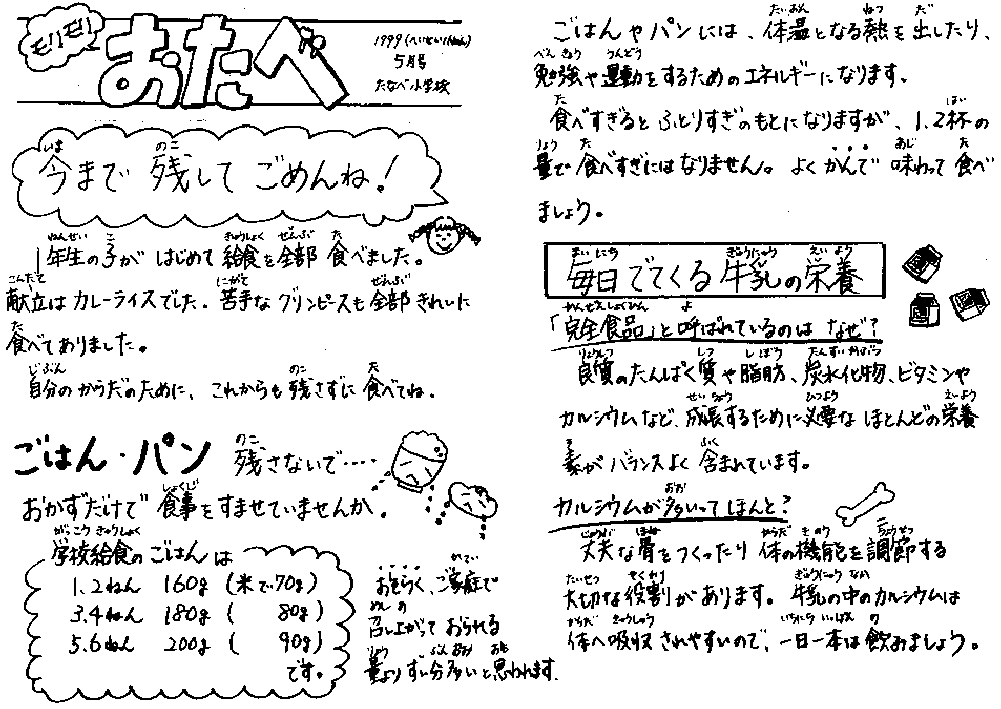 モリモリ
おたべ
1999(へいせい11ねん)
5月号
たなべ小学校
今まで 残して ごめんね!
1年生の子が はじめて 給食を全部 食べました。
献立はカレーライスでした。苦手な グリンピースも全部 きれいに
食べてありました。
自分の からだのために、これからも 残さずに 食べてね。
ごはん・パン 残さないで‥‥
おかずだけで 食事をすませていませんか。
学校給食の ごはん は
1.2ねん 160g (米で70g)
3.4ねん 180g ( 80g)
5.6ねん 200g ( 90g)
です。
おそらく、ご家庭で
召し上がって おられる
量より ずい分多いと思われます.
ごはんやパンには、体温となる熱を出したり、
勉強や運動をするためのエネルギーになります。
食べすぎると ふとりすぎのもとになりますが、1、2杯の
量で 食べすぎにはなりません。よくかんで 味わって 食べ
ましょう。
毎日 でてくる 牛乳の栄養
「完全食品」と呼ばれているのは なぜ?
良質のたんぱく質や脂肪、炭水化物、ビタミンや
カルシウムなど、成長するために必要な ほとんどの栄養
素が バランスよく 含まれています。
カルシウムが多いって ほんと?
丈夫な骨をつくったり 体の機能を調節する
大切な役割があります。牛乳の中のカルシウムは
体へ吸収 されやすいので、一日一本は飲みましょう。